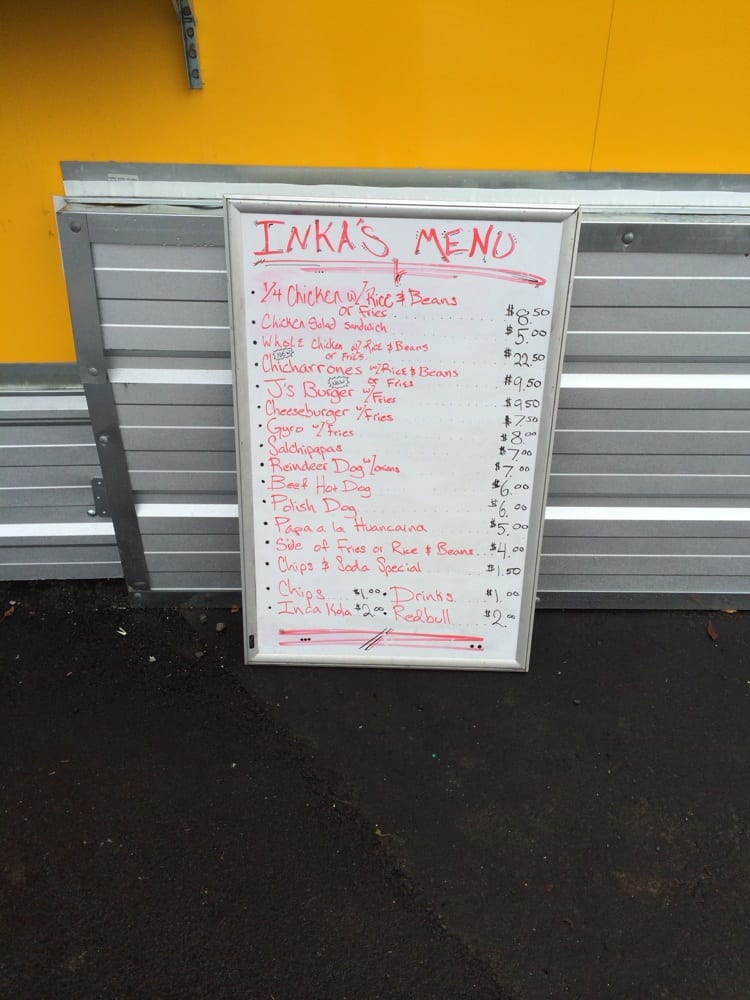 INKA'S MENU
• 1/4 Chicken w/ Rice & Beans
or Fries $8.50
• Chicken Salad Sandwich $5.00
• Whole Chicken w/ Rice & Beans
or Fries $22.50
NEW
• Chicharrones w/ Rice & Beans
or Fries $9.50
NEW
• J's Burger w/ Fries $9.50
• Cheeseburger w/ Fries $7.50
• Gyro w/ Fries $8.00
• Salchipapas $7.00
• Reindeer Dog w/ onions $7.00
• Beef Hot Dog $6.00
• Polish Dog $6.00
• Papa a la Huancaina $5.00
• Side of Fries or Rice & Beans $4.00
• Chips & Soda Special $1.50
• Chips $1.00 • Drinks $1.00
• Inca Kola $2.00 • Redbull $2.00